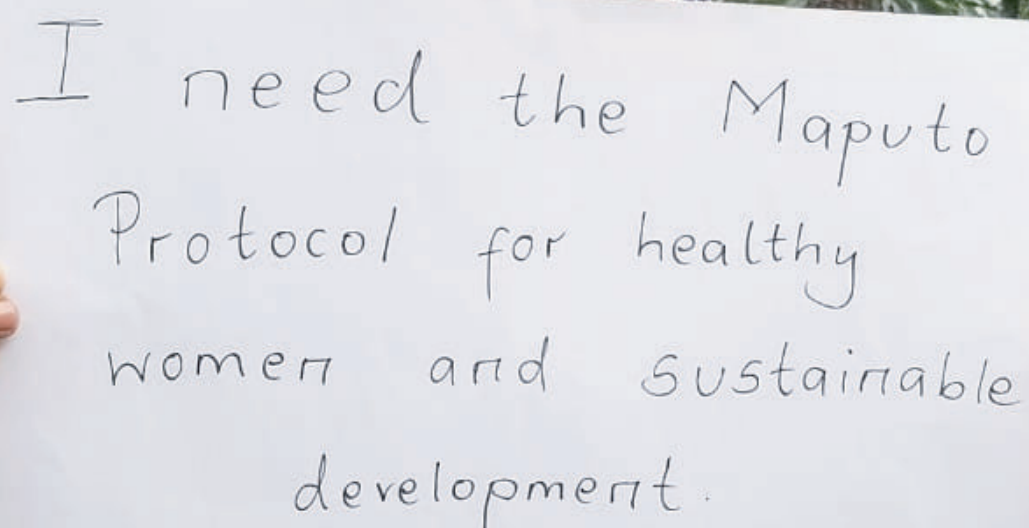 I need the Maputo
Protocol for healthy
women and sustainable
development.